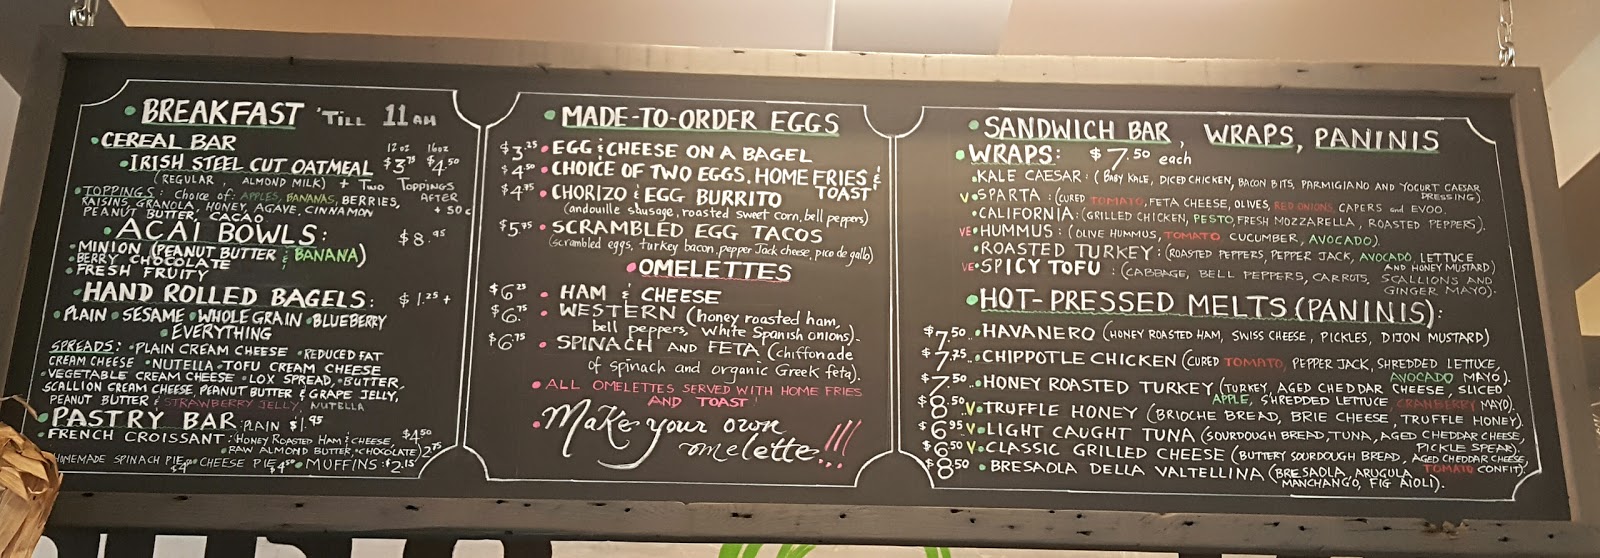 BREAKFAST 'TILL 11 AM
CEREAL BAR 12oz 16oz
IRISH STEEL CUT OATMEAL $3.75 $4.50
(REGULAR, ALMOND MILK) + TWO TOPPINGS
TOPPINGS: Choice of: APPLES, BANANAS, BERRIES, AFTER
RAISINS, GRANOLA, HONEY, AGAVE, CINNAMON + 50c
PEANUT BUTTER, CACAO.
ACAI BOWLS: $8.95
MINION (PEANUT BUTTER & BANANA)
BERRY CHOCOLATE
FRESH FRUITY
HAND ROLLED BAGELS: $1.25+
PLAIN • SESAME • WHOLE GRAIN • BLUEBERRY
• EVERYTHING
SPREADS: • PLAIN CREAM CHEESE • REDUCED FAT
CREAM CHEESE • NUTELLA • TOFU CREAM CHEESE
• VEGETABLE CREAM CHEESE • LOX SPREAD, • BUTTER,
SCALLION CREAM CHEESE, PEANUT BUTTER & GRAPE JELLY,
PEANUT BUTTER & STRAWBERRY JELLY, NUTELLA
PASTRY BAR: PLAIN $1.95
• FRENCH CROISSANT: (HONEY ROASTED HAM & CHEESE, $4.50
• RAW ALMOND BUTTER, • CHOCOLATE) 2.75
HOMEMADE SPINACH PIE $4.50 • CHEESE PIE $4.50 • MUFFINS: $2.15
MADE-TO-ORDER EGGS
$3.25 • EGG & CHEESE ON A BAGEL
$4.50 • CHOICE OF TWO EGGS, HOME FRIES &
TOAST
$4.75 • CHORIZO & EGG BURRITO
(andouille sausage, roasted sweet corn, bell peppers)
$5.75 • SCRAMBLED EGG TACOS
(scrambled eggs, turkey bacon, pepper Jack cheese, pico de gallo)
• OMELETTES
$6.25 • HAM & CHEESE
$6.75 • WESTERN (honey roasted ham,
bell peppers, white Spanish onions).
$6.75 • SPINACH AND FETA (chiffonade
of spinach and organic Greek feta).
• ALL OMELETTES SERVED WITH HOME FRIES
AND TOAST!
• Make your own
omelette...!!!
• SANDWICH BAR, WRAPS, PANINIS
• WRAPS: $7.50 each
• KALE CAESAR: (BABY KALE, DICED CHICKEN, BACON BITS, PARMIGIANO AND YOGURT CAESAR
DRESSING)
V • SPARTA: (CURED TOMATO, FETA CHEESE, OLIVES, RED ONIONS, CAPERS and EVOO.
• CALIFORNIA: (GRILLED CHICKEN, PESTO, FRESH MOZZARELLA, ROASTED PEPPERS).
VE • HUMMUS: (OLIVE HUMMUS, TOMATO CUCUMBER, AVOCADO).
• ROASTED TURKEY: (ROASTED PEPPERS, PEPPER JACK, AVOCADO, LETTUCE
AND HONEY MUSTARD)
VE • SPICY TOFU: (CABBAGE, BELL PEPPERS, CARROTS, SCALLIONS AND
GINGER MAYO).
• HOT-PRESSED MELTS (PANINIS):
$7.50 • HAVANERO (HONEY ROASTED HAM, SWISS CHEESE, PICKLES, DIJON MUSTARD)
$7.75 • CHIPPOTLE CHICKEN (CURED TOMATO, PEPPER JACK, SHREDDED LETTUCE,
AVOCADO MAYO).
$7.50 • HONEY ROASTED TURKEY (TURKEY, AGED CHEDDAR CHEESE, SLICED
APPLE, SHREDDED LETTUCE, CRANBERRY MAYO).
$8.50 V • TRUFFLE HONEY (BRIOCHE BREAD, BRIE CHEESE, TRUFFLE HONEY).
$6.95 V • LIGHT CAUGHT TUNA (SOURDOUGH BREAD, TUNA, AGED CHEDDAR CHEESE,
PICKLE SPEAR).
$6.50 V • CLASSIC GRILLED CHEESE (BUTTERY SOURDOUGH BREAD, AGED CHEDDAR CHEESE,
TOMATO CONFIT).
$8.50 • BRESAOLA DELLA VALTELLINA (BRESAOLA, ARUGULA,
MANCHANGO, FIG AIOLI).